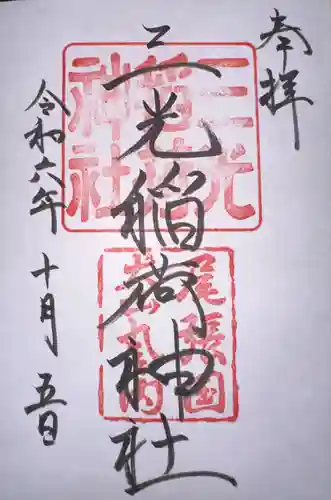 奉拝
三光稲荷神社
三光
稲荷
神社
尾張国
犬山丸の内
令和六年 十月 五日